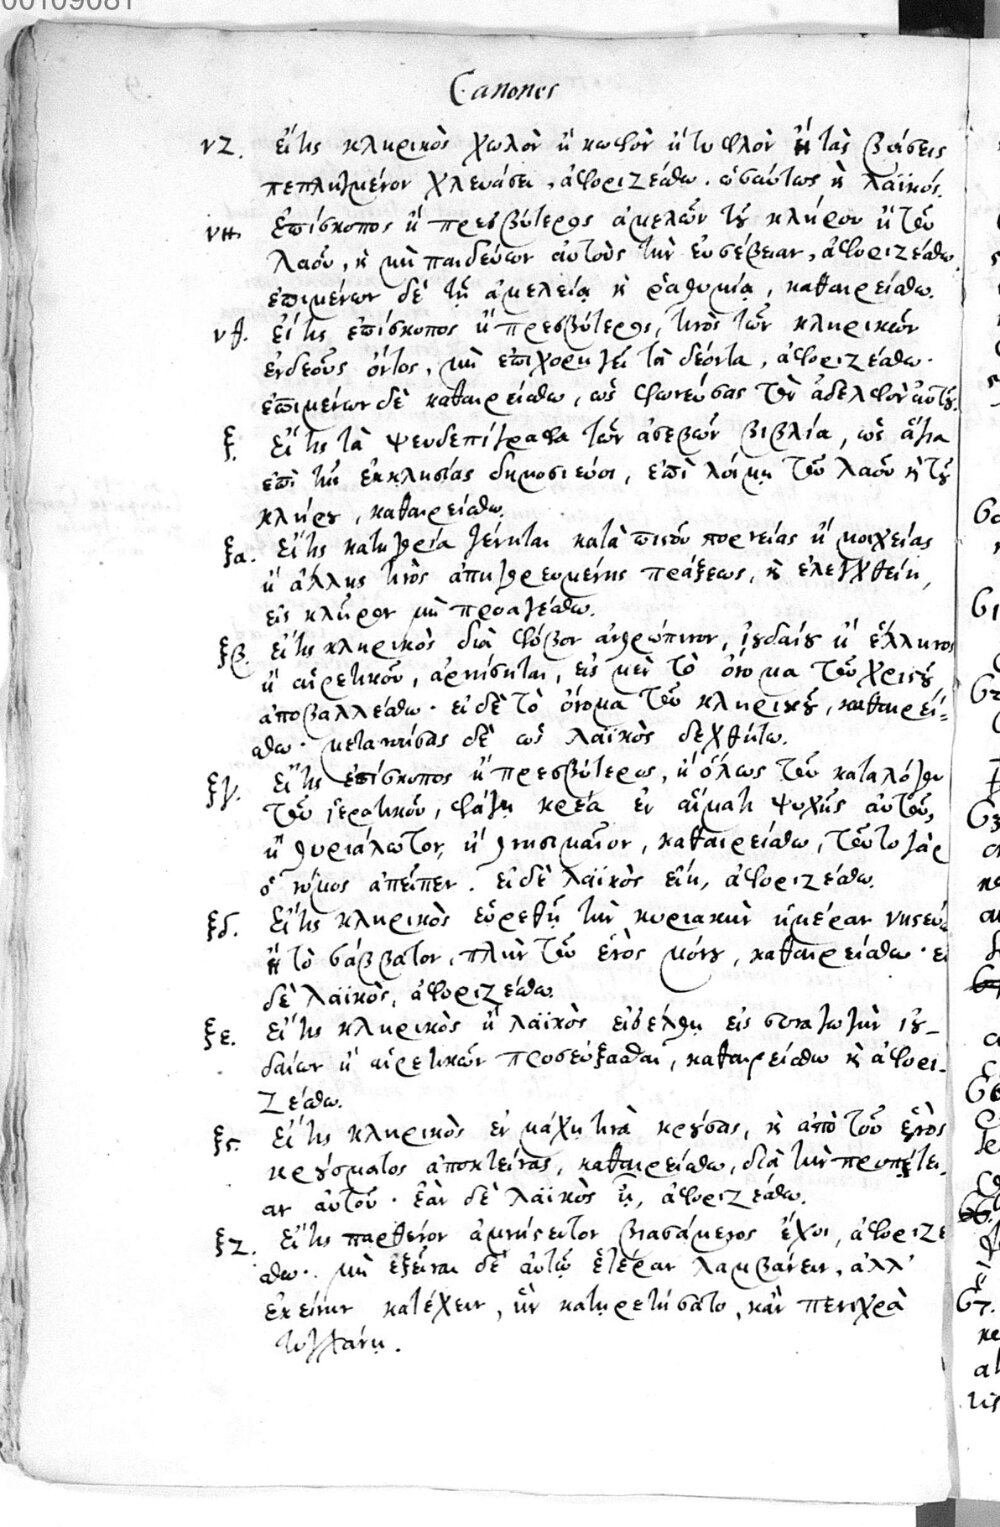 00109081
Canones
νζ. εἴτις κληρικὸς χωλὸν ἢ κωφὸν ἢ τυφλὸν ἢ τὰς βάσεις
πεπληγμένον χλευάσει, ἀφοριζέσθω. ὡσαύτως κ λαϊκός.
νη. Ἐπίσκοπος ἢ πρεσβύτερος ἀμελῶν τοῦ κλήρου ἢ τοῦ
λαοῦ, κ μὴ παιδεύων αὐτοὺς τὴν εὐσέβειαν, ἀφοριζέσθω.
ἐπιμένων δὲ τῇ ἀμελείᾳ κ ῥαθυμίᾳ, καθαιρείσθω.
νθ. Εἴτις ἐπίσκοπος ἢ πρεσβύτερος, τινὸς τῶν κληρικῶν
ἐνδεοῦς ὄντος, μὴ ἐπιχορηγεῖ τὰ δέοντα, ἀφοριζέσθω.
ἐπιμένων δὲ καθαιρείσθω, ὡς φωνεύσας τὸν ἀδελφὸν αὐτοῦ.
ξ. Εἴτις τὰ ψευδεπίγραφα τῶν ἀσεβῶν βιβλία, ὡς ἅγια
ἐπὶ τῆς ἐκκλησίας δημοσιεύοι, ἐπὶ λύμῃ τοῦ λαοῦ κ τοῦ
κλήρου, καθαιρείσθω.
ξα. Εἴτις κατηγορία γένηται κατὰ πιστοῦ πορνείας ἢ μοιχείας
ἢ ἄλλης τινὸς ἀπηγορευμένης πράξεως, κ ἐλεγχθείη,
εἰς κλῆρον μὴ προαγέσθω.
ξβ. εἴτις κληρικὸς διὰ φόβον ἀνθρώπινον, ἰουδαίου ἢ ἕλληνος
ἢ αἱρετικοῦ, ἀρνήσηται, εἰς μὲν τὸ ὄνομα τοῦ χριστοῦ
ἀποβαλλέσθω. εἰ δὲ τὸ ὄνομα τοῦ κληρικοῦ, καθαιρεί-
σθω. μετανοήσας δὲ ὡς λαϊκὸς δεχθήτω.
ξγ. Εἴτις ἐπίσκοπος ἢ πρεσβύτερος, ἢ ὅλως τοῦ καταλόγου
τοῦ ἱερατικοῦ, φάγῃ κρέα ἐν αἵματι ψυχῆς αὐτοῦ,
ἢ θυριάλωτον, ἢ θνησιμαῖον, καθαιρείσθω, τοῦτο γὰρ
ὁ νόμος ἀπεῖπεν. εἰ δὲ λαϊκὸς εἴη, ἀφοριζέσθω.
ξδ. Εἴτις κληρικὸς εὑρεθῇ τὴν κυριακὴν ἡμέραν νηστεύ-
ἢ τὸ σάββατον, πλὴν τοῦ ἑνὸς μόνου, καθαιρείσθω. εἰ
δὲ λαϊκὸς, ἀφοριζέσθω.
ξε. εἴτις κληρικὸς ἢ λαϊκὸς εἰσέλθῃ εἰς συναγωγὴν ἰου-
δαίων ἢ αἱρετικῶν προσεύξασθαι, καθαιρείσθω κ ἀφορι-
ζέσθω.
ξς. Εἴτις κληρικὸς ἐν μάχῃ τινὰ κρούσας, κ ἀπὸ τοῦ ἑνὸς
κρούσματος ἀποκτείνας, καθαιρείσθω, διὰ τὴν προπέτει-
αν αὐτοῦ. ἐὰν δὲ λαϊκὸς ᾖ, ἀφοριζέσθω.
ξζ. Εἴτις παρθένον ἀμνήστευτον βιασάμενος ἔχοι, ἀφοριζέ
σθω. μὴ ἐξεῖναι δὲ αὐτῷ ἑτέραν λαμβάνειν, ἀλλ'
ἐκείνην κατέχειν, ἣν κατῃρετήσατο, κἂν πενιχρὰ
τυγχάνῃ.